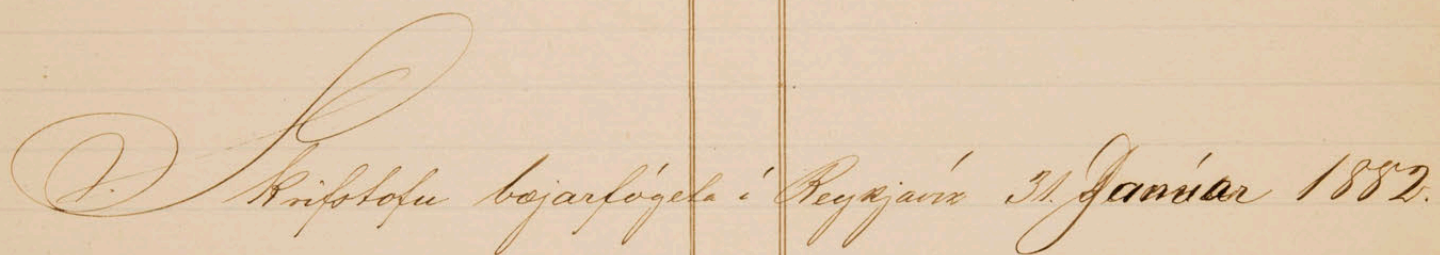 Skrifstofu bæjarfógeta í Reykjavík 31. Janúar 1882.